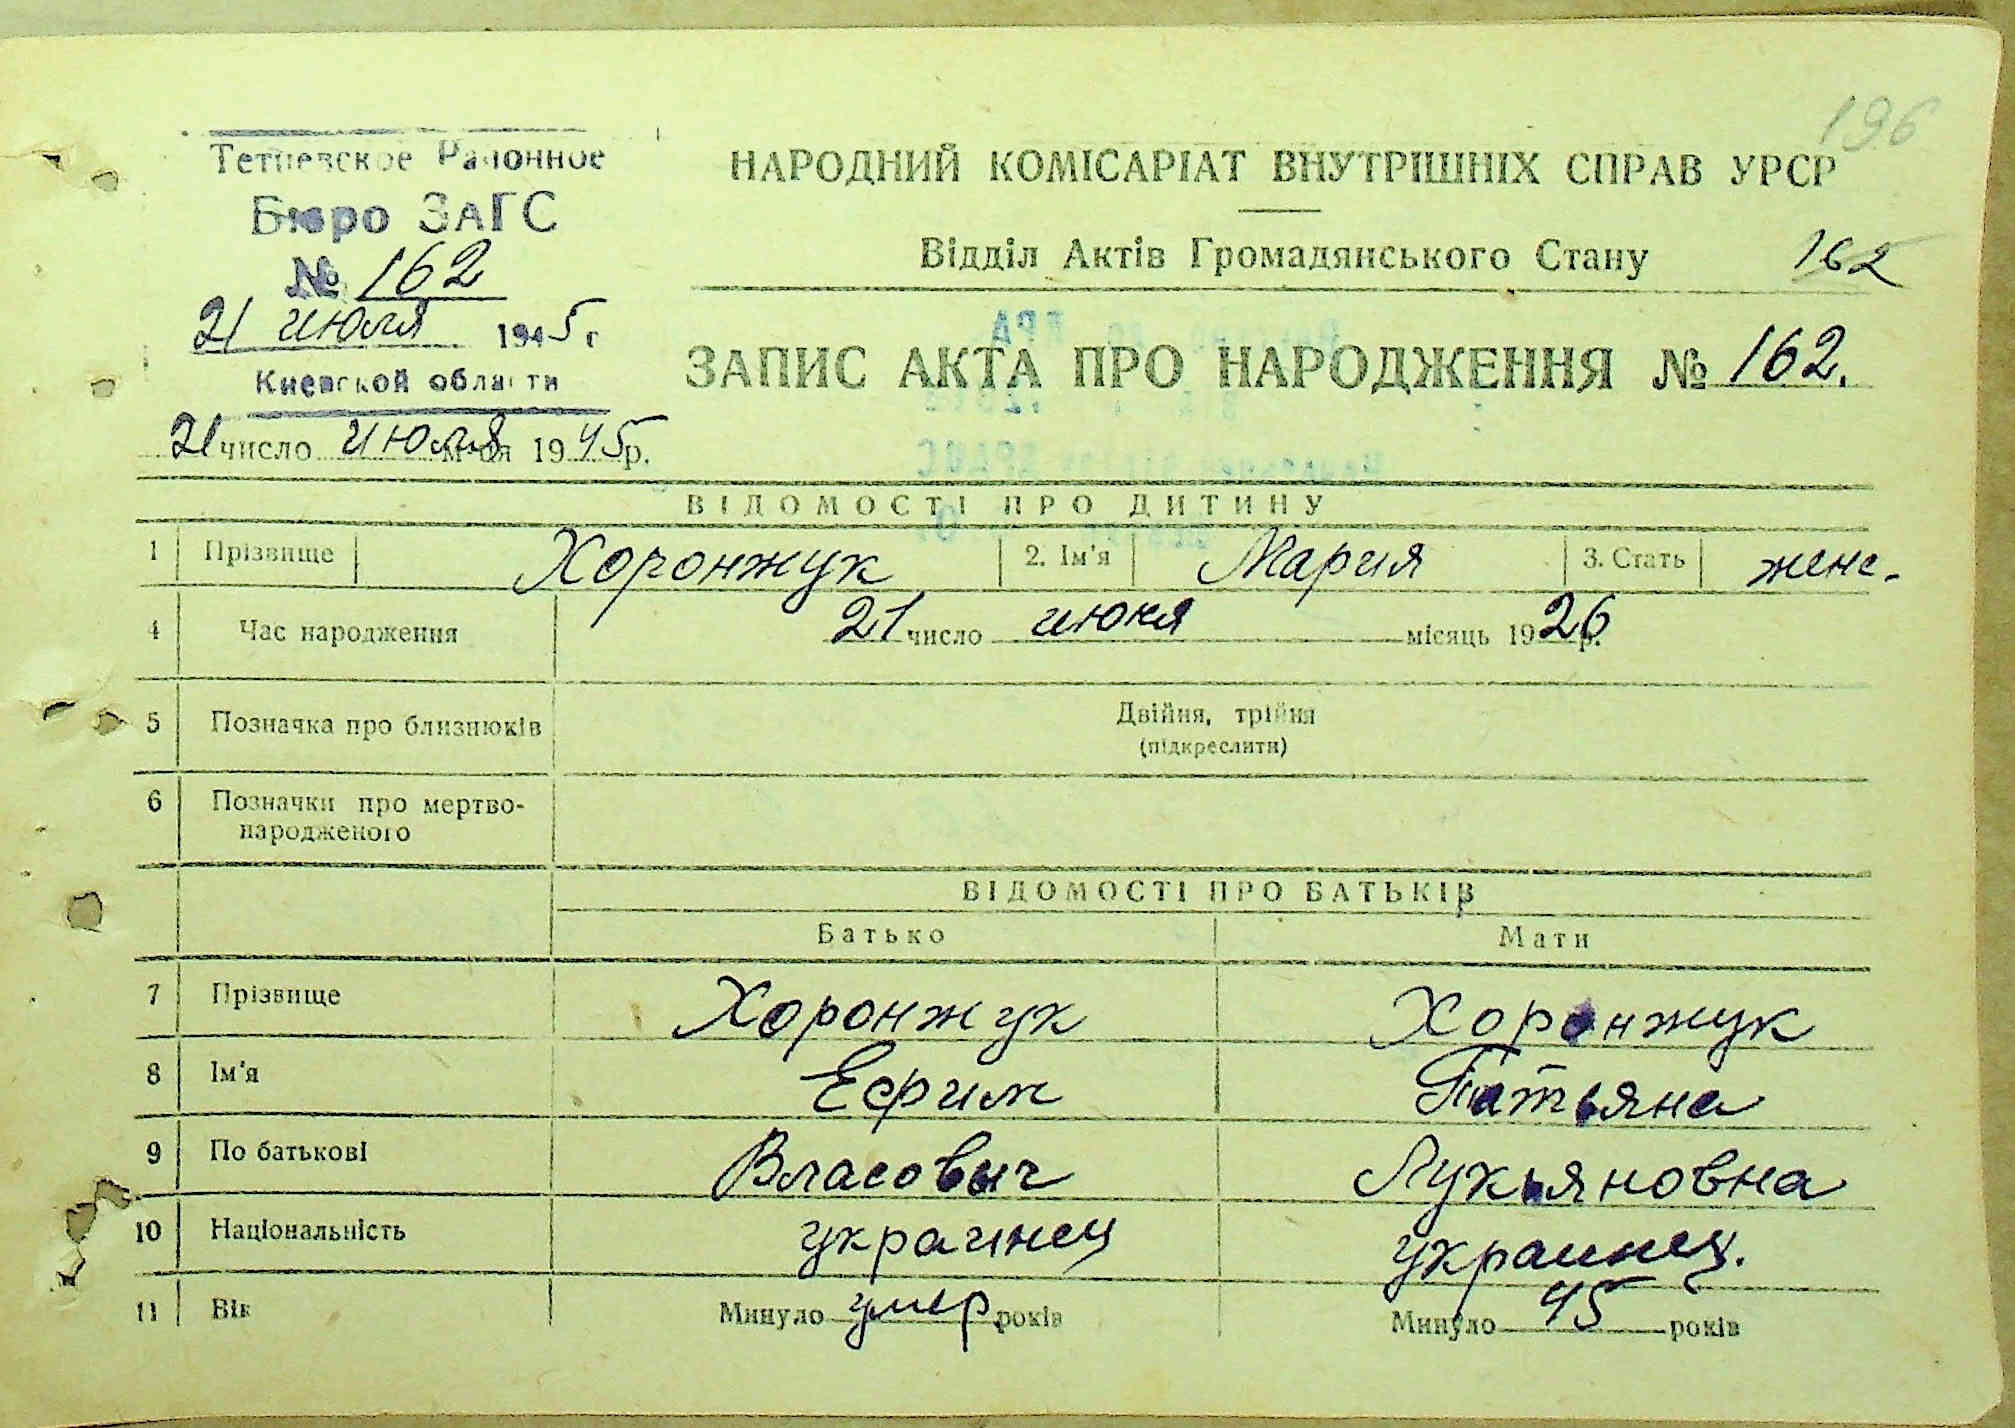 196
Тетиевское Районное
Бюро ЗАГС
№ 162
21 июля 1945 г
Киевской области
21 число июля м-ця 1945 р.
НАРОДНИЙ КОМІСАРІАТ ВНУТРІШНІХ СПРАВ УРСР
Відділ Актів Громадянського Стану 162
ЗАПИС АКТА ПРО НАРОДЖЕННЯ № 162.
ВІДОМОСТІ ПРО ДИТИНУ
1 Прізвище Хоронжук 2. Ім'я Мария 3. Стать женс.
4 Час народження 21 число июня місяць 1926 р.
5 Позначка про близнюків Двійня, трійня
(підкреслити)
6 Позначки про мертво-
народженого
ВІДОМОСТІ ПРО БАТЬКІВ
Батько Мати
7 Прізвище Хоронжук Хоронжук
8 Ім'я Ефрим Татьяна
9 По батькові Власовыч Лукьяновна
10 Національність украинец украинец.
11 Вік Минуло умер років Минуло 45 років